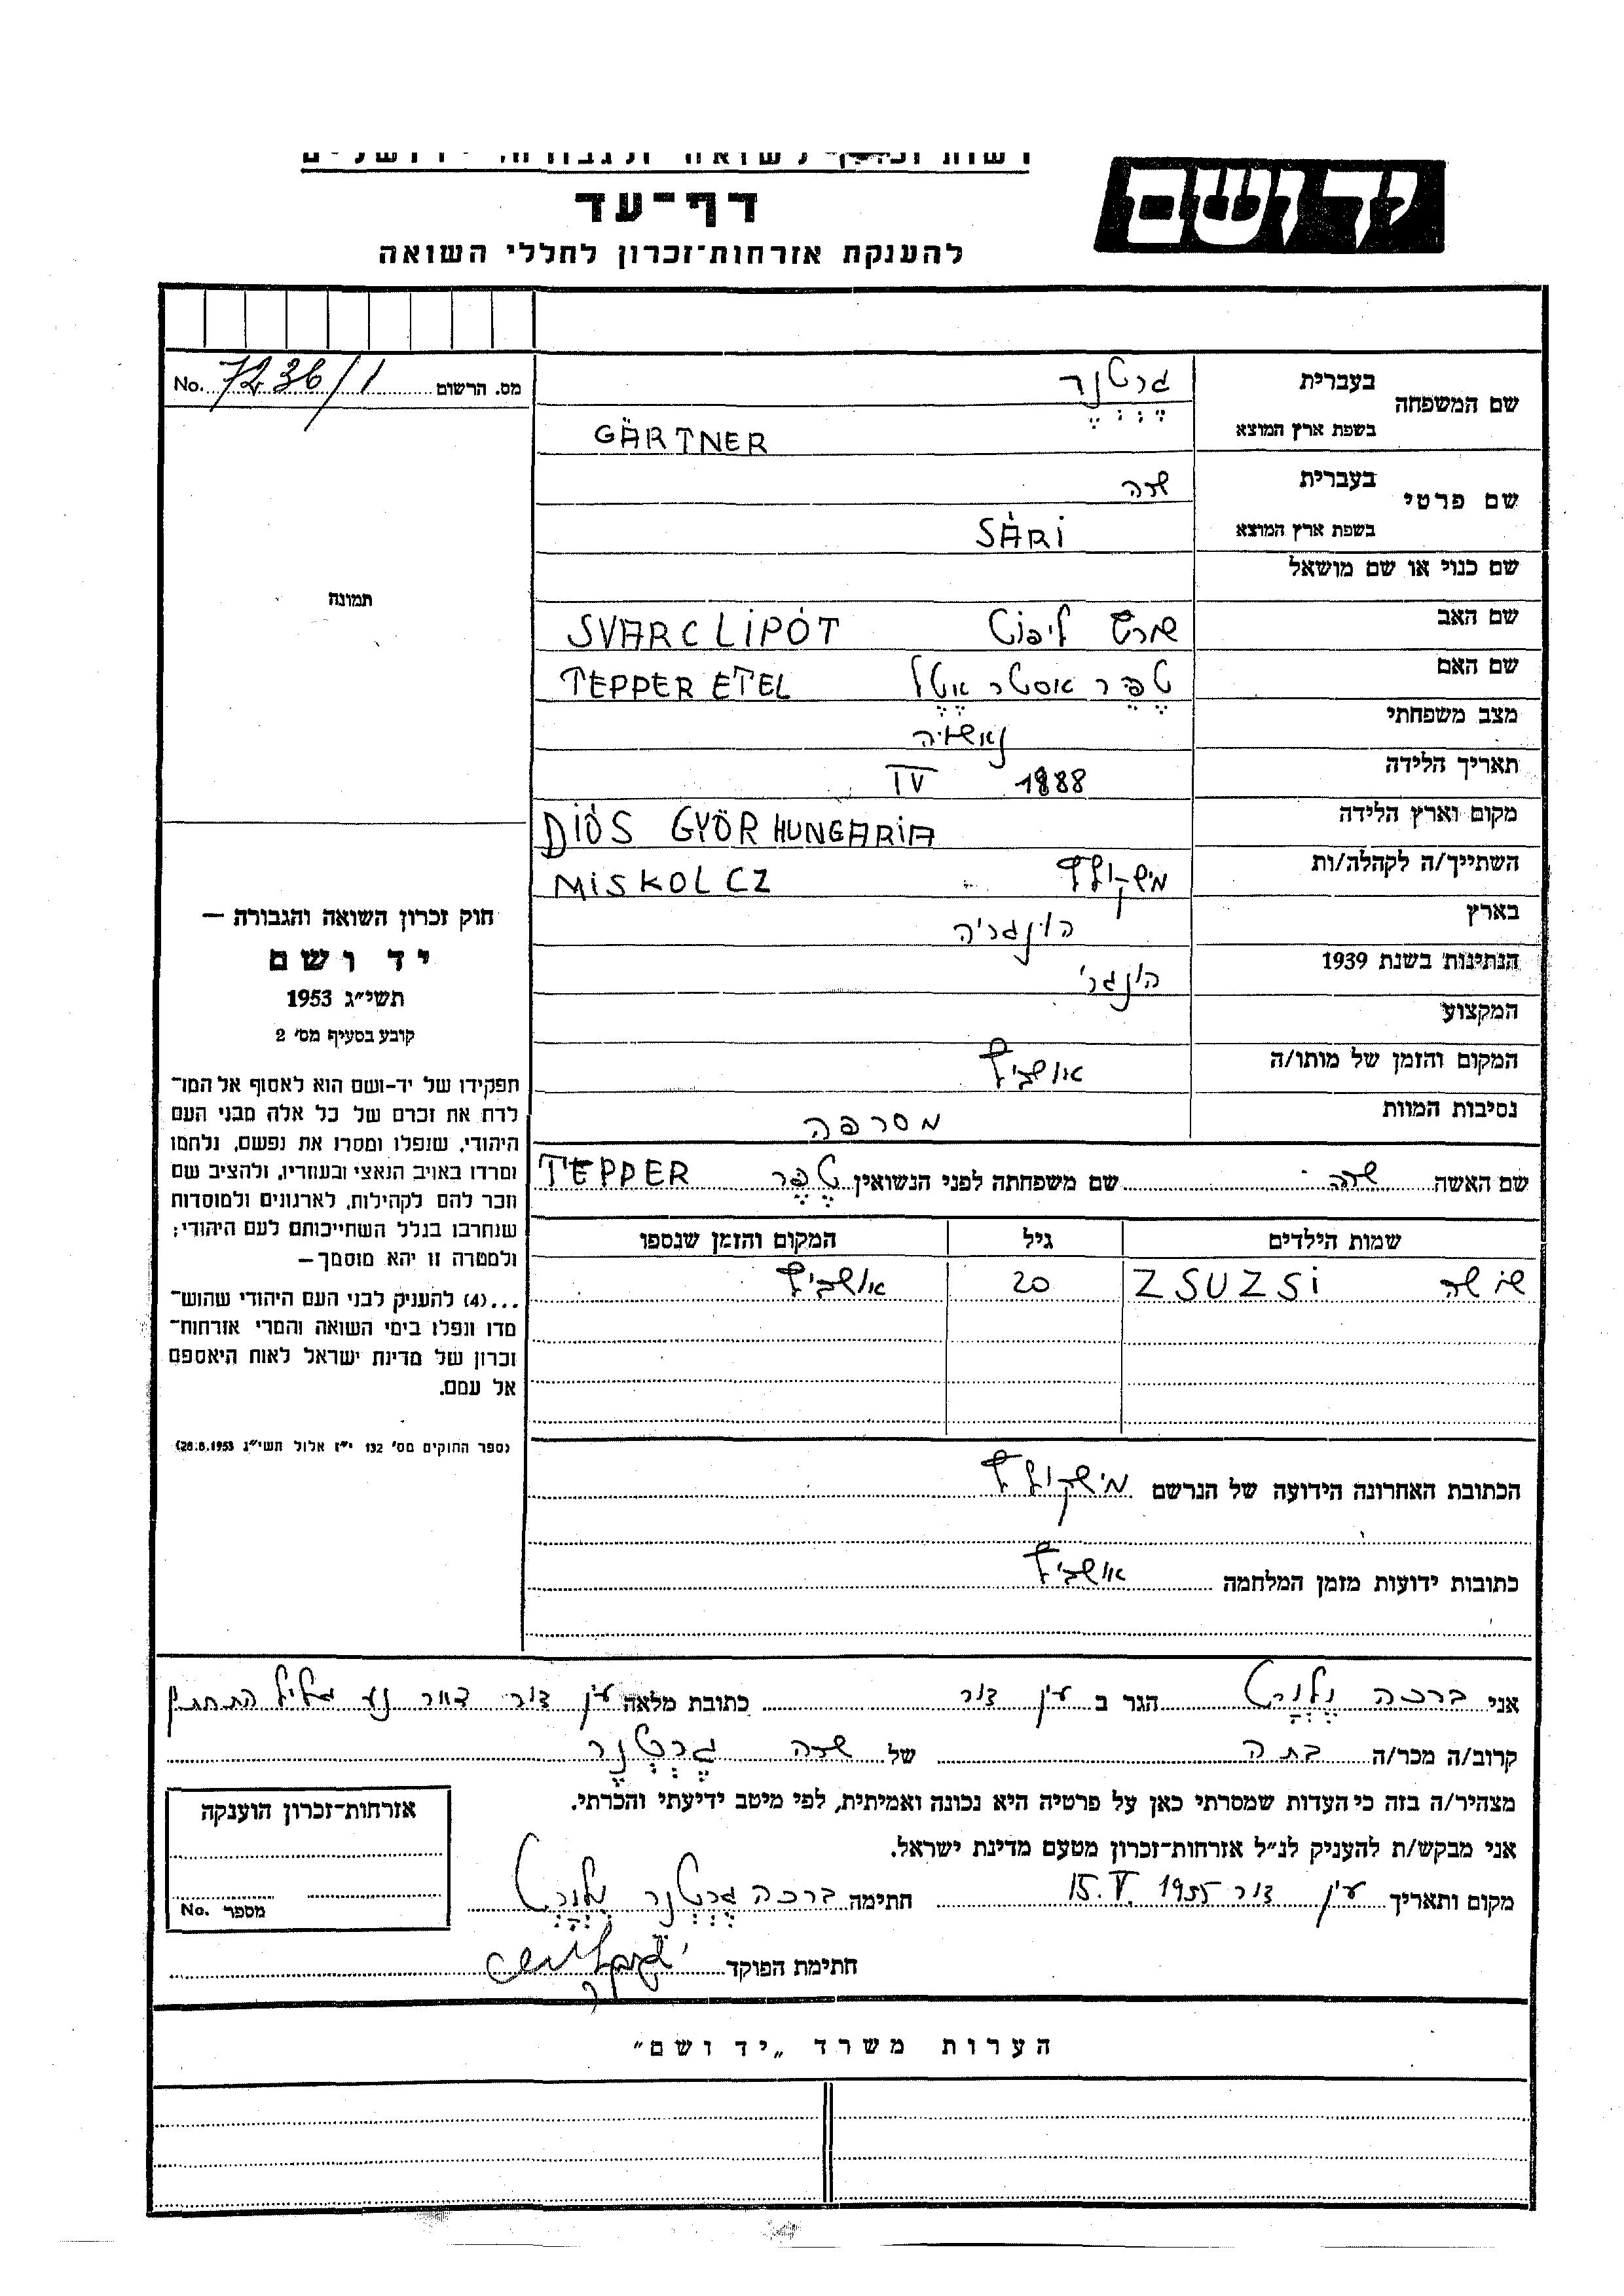 יד ושם
דף־עד
להענקת אזרחות־זכרון לחללי השואה
מס. הרשום 7236/1 No.
שם המשפחה
בעברית גרטנר
בשפת ארץ המוצא GÄRTNER
שם פרטי
בעברית שרה
בשפת ארץ המוצא SÀRI
שם כנוי או שם מושאל
שם האב שורץ ליפוט SVARC LIPÓT
שם האם טפר אסטר אטל TEPPER ETEL
מצב משפחתי נאשואה
תאריך הלידה 1888 IV
מקום וארץ הלידה DIÓS GYÖR HUNGARIA
השתייך/ה לקהלה/ות מישקולץ MISKOLCZ
בארץ הונגריה
הנתינות בשנת 1939 הונגרי
המקצוע
המקום והזמן של מותו/ה אושביץ
נסיבות המוות מסרפה
שם האשה שרה שם משפחתה לפני הנשואין טפר TEPPER
שמות הילדים גיל המקום והזמן שנספו
ZSUZSI 20 אושביץ
הכתובת האחרונה הידועה של הנרשם מישקולץ
כתובות ידועות מזמן המלחמה אושביץ
תמונה
חוק זכרון השואה והגבורה —
יד ושם
תשי״ג 1953
קובע בסעיף מס׳ 2
תפקידו של יד-ושם הוא לאסוף אל המו־
לדת את זכרם של כל אלה מבני העם
היהודי, שנפלו ומסרו את נפשם, נלחמו
ומרדו באויב הנאצי ובעוזריו, ולהציב שם
וזכר להם לקהילות, לארגונים ולמוסדות
שנחרבו בגלל השתייכותם לעם היהודי;
ולמטרה זו יהא מוסמך—
...(4) להעניק לבני העם היהודי שהוש־
מדו ונפלו בימי השואה והמרי אזרחות־
זכרון של מדינת ישראל לאות היאספם
אל עמם.
(ספר החוקים מס׳ 132 י״ז אלול תשי״ג 28.8.1953)
אני ברכה הגר ב עין דור כתובת מלאה עין דור דואר נע גליל התחתון
קרוב/ה מכר/ה בתה של שרה גרטנר
מצהיר/ה בזה כי העדות שמסרתי כאן על פרטיה היא נכונה ואמיתית, לפי מיטב ידיעתי והכרתי.
אני מבקש/ת להעניק לנ״ל אזרחות־זכרון מטעם מדינת ישראל.
מקום ותאריך עין דור 15.V.1955 חתימה ברכה גרטנר
חתימת הפוקד
אזרחות־זכרון הוענקה
מספר No.
הערות משרד „יד ושם”